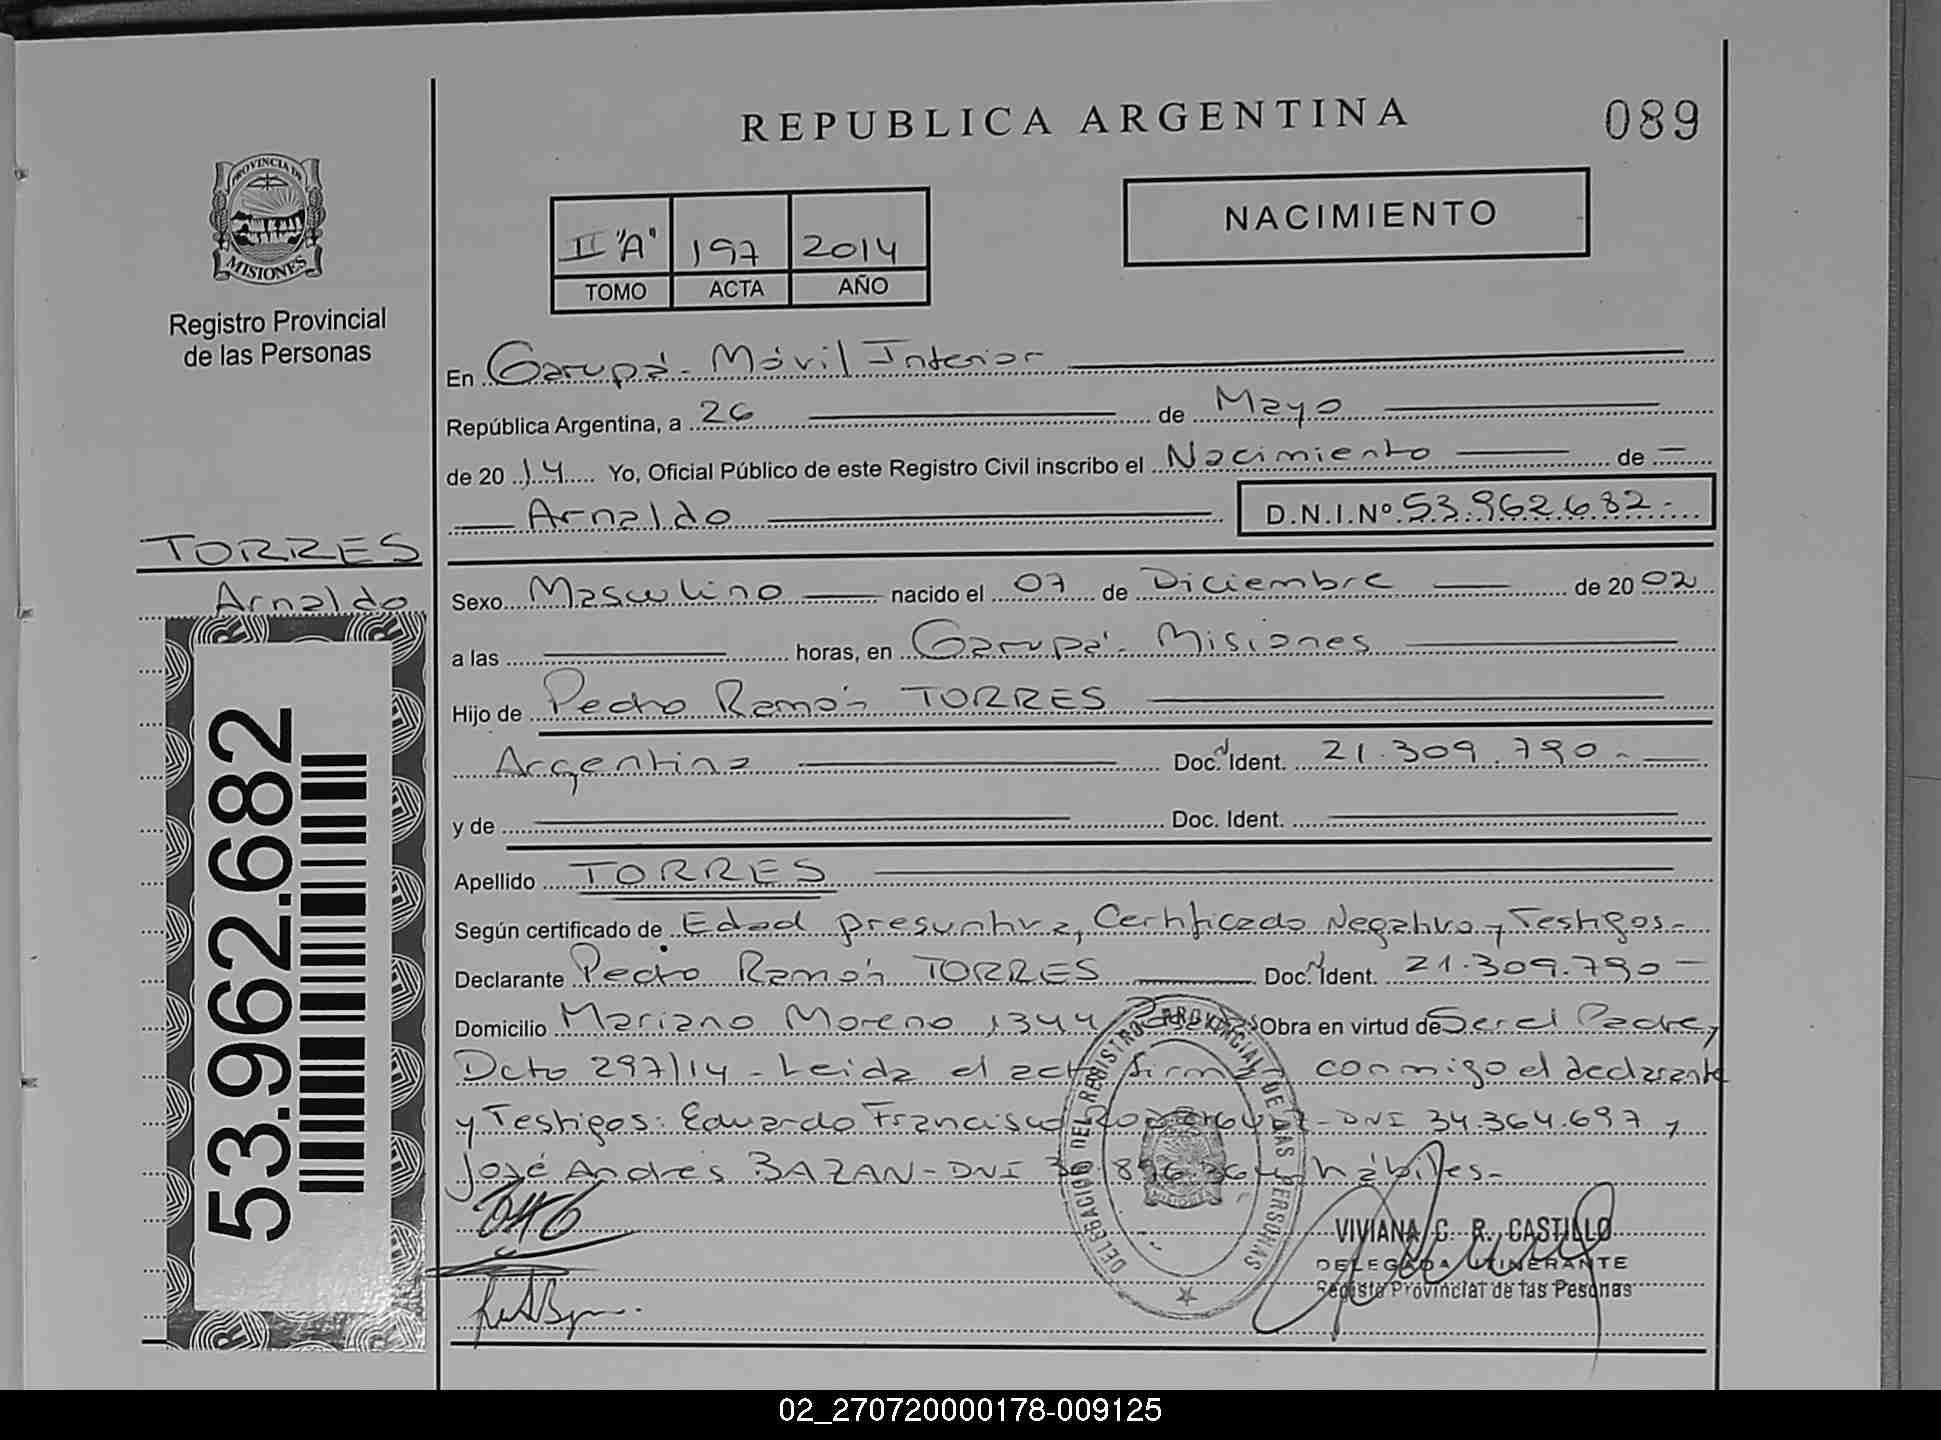 REPUBLICA ARGENTINA
089
PROVINCIA DE
MISIONES
Registro Provincial
de las Personas
NACIMIENTO
II "A" 197 2014
TOMO ACTA AÑO
En Garupá - Móvil Interior
República Argentina, a 26 de Mayo
de 2014 Yo, Oficial Público de este Registro Civil inscribo el Nacimiento de
Arnaldo D.N.I.Nº 53.962.682.-
TORRES
Arnaldo
53.962.682
Sexo Masculino nacido el 07 de Diciembre de 2002
a las horas, en Garupá - Misiones
Hijo de Pedro Ramón TORRES
Argentina Doc. Ident. 21.309.790.-
y de Doc. Ident.
Apellido TORRES
Según certificado de Edad presuntiva, Certificado Negativo y Testigos.-
Declarante Pedro Ramón TORRES Doc. Ident. 21.309.790-
Domicilio Mariano Moreno 1344 Obra en virtud de Ser el Padre, y
Dcto 297/14 - Leida el acta firman conmigo el declarante
y Testigos: Eduardo Francisco RODRIGUEZ - DNI 34.364.697 y
José Andrés BAZAN - DNI hábiles-
DELEGACION DEL REGISTRO PROVINCIAL DE LAS PERSONAS
VIVIANA C. R. CASTILLO
DELEGADA ITINERANTE
Registro Provincial de las Pesonas
02_270720000178-009125